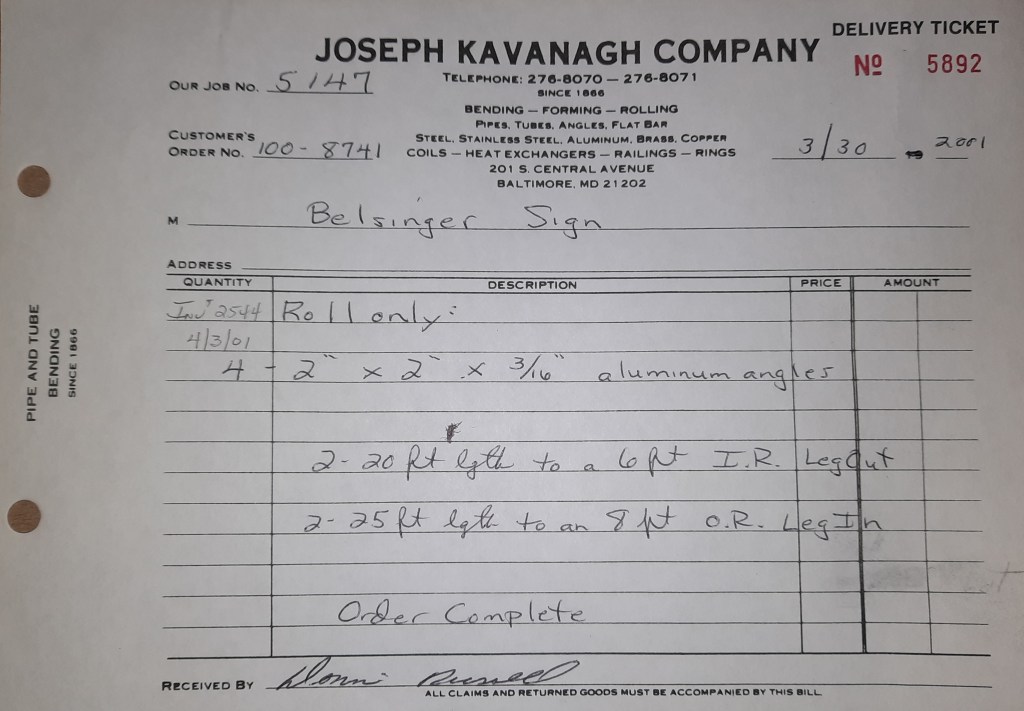 DELIVERY TICKET
JOSEPH KAVANAGH COMPANY
Nº 5892
OUR JOB NO. 5147
TELEPHONE: 276-8070 — 276-8071
SINCE 1866
BENDING — FORMING — ROLLING
PIPES, TUBES, ANGLES, FLAT BAR
CUSTOMER'S
ORDER NO. 100-8741
STEEL, STAINLESS STEEL, ALUMINUM, BRASS, COPPER
COILS — HEAT EXCHANGERS — RAILINGS — RINGS
3/30 2001
201 S. CENTRAL AVENUE
BALTIMORE, MD 21202
M Belsinger Sign
ADDRESS
QUANTITY DESCRIPTION PRICE AMOUNT
Inv# 2544 Roll only:
4/3/01
4 - 2" x 2" x 3/16" aluminum angles
2-20 ft lgth to a 6 ft I.R. Leg Out
2-25 ft lgth to an 8 ft O.R. Leg In
Order Complete
RECEIVED BY Donni Russell
ALL CLAIMS AND RETURNED GOODS MUST BE ACCOMPANIED BY THIS BILL
PIPE AND TUBE
BENDING
SINCE 1866